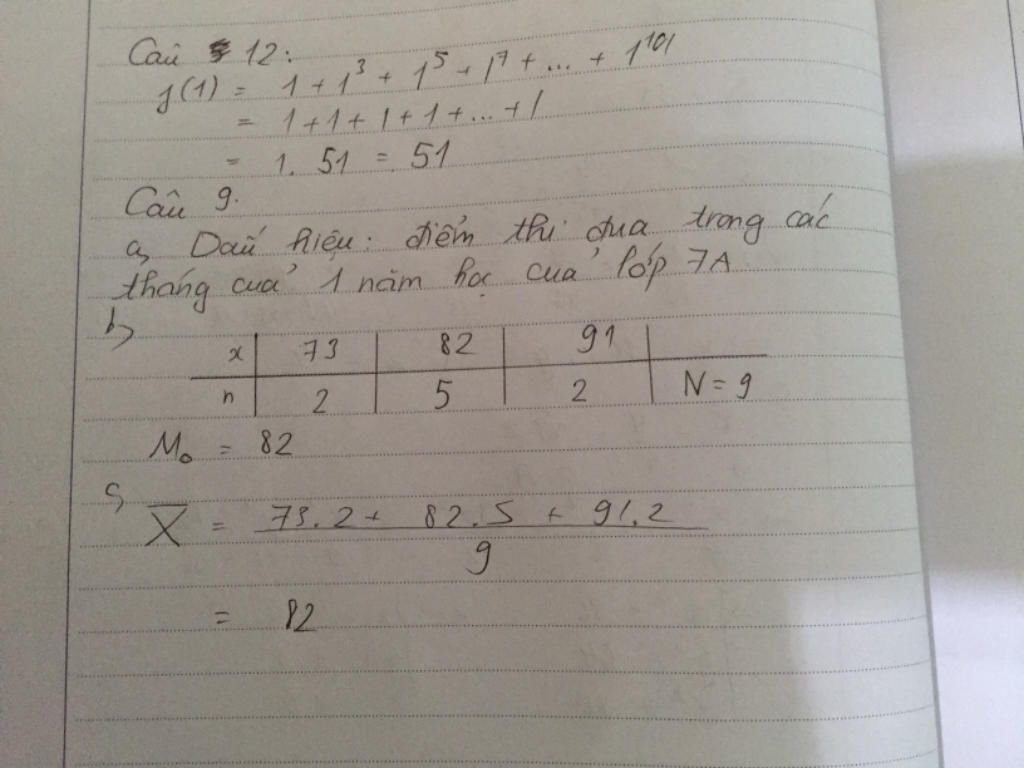 Câu 12:
f(1) = 1 + 1³ + 1⁵ + 1⁷ + ... + 1¹⁰¹
= 1 + 1 + 1 + 1 + ... + 1
= 1. 51 = 51
Câu 9.
a, Dấu hiệu: điểm thi đua trong các
tháng của 1 năm học của lớp 7A
b,
x 73 82 91
n 2 5 2 N = 9
M₀ = 82
c,
X̅ = 73.2 + 82.5 + 91.2
9
= 82